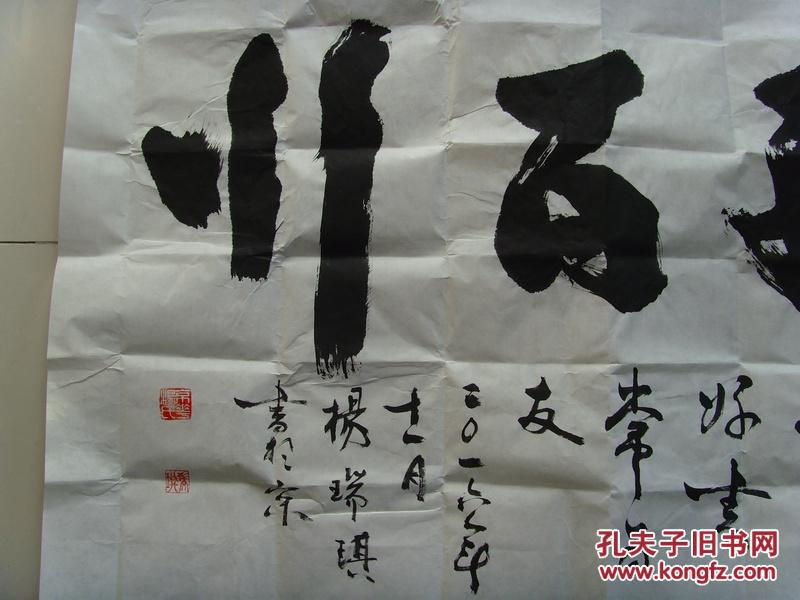 百川
好书
常
友
二〇一六年
十一月
楊瑞琪
書於京
孔夫子旧书网
www.kongfz.com